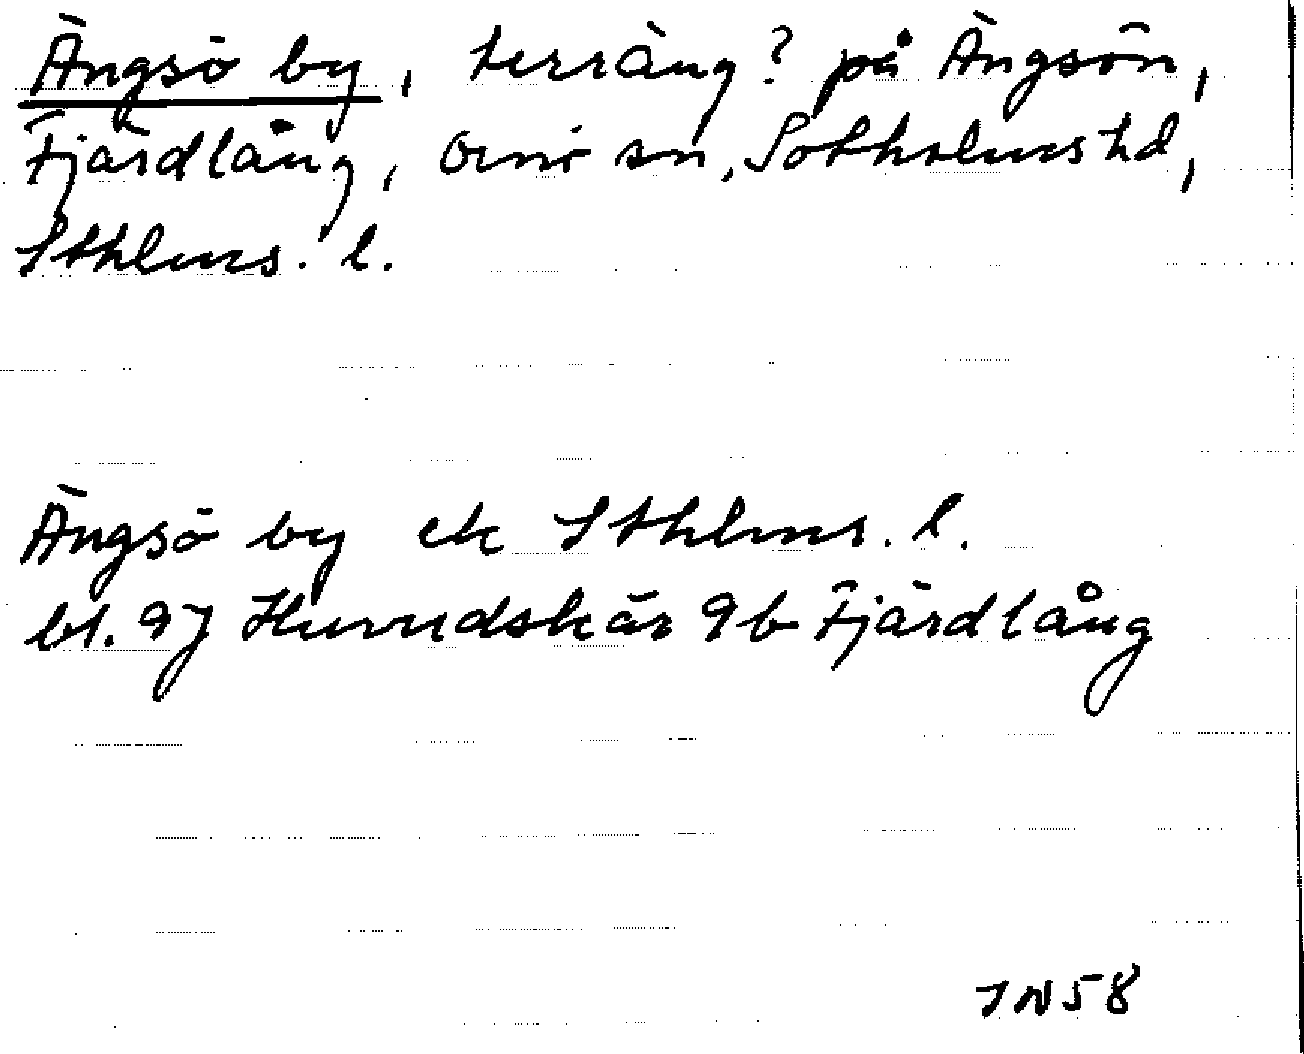 Ängsö by, terräng? på Ängsön,
Fjärdlång, Ornö sn, Sotholms hd,
Sthlms. l.
Ängsö by ek Sthlms. l.
bl. 97 Huvudskär 9b Fjärdlång
IN58